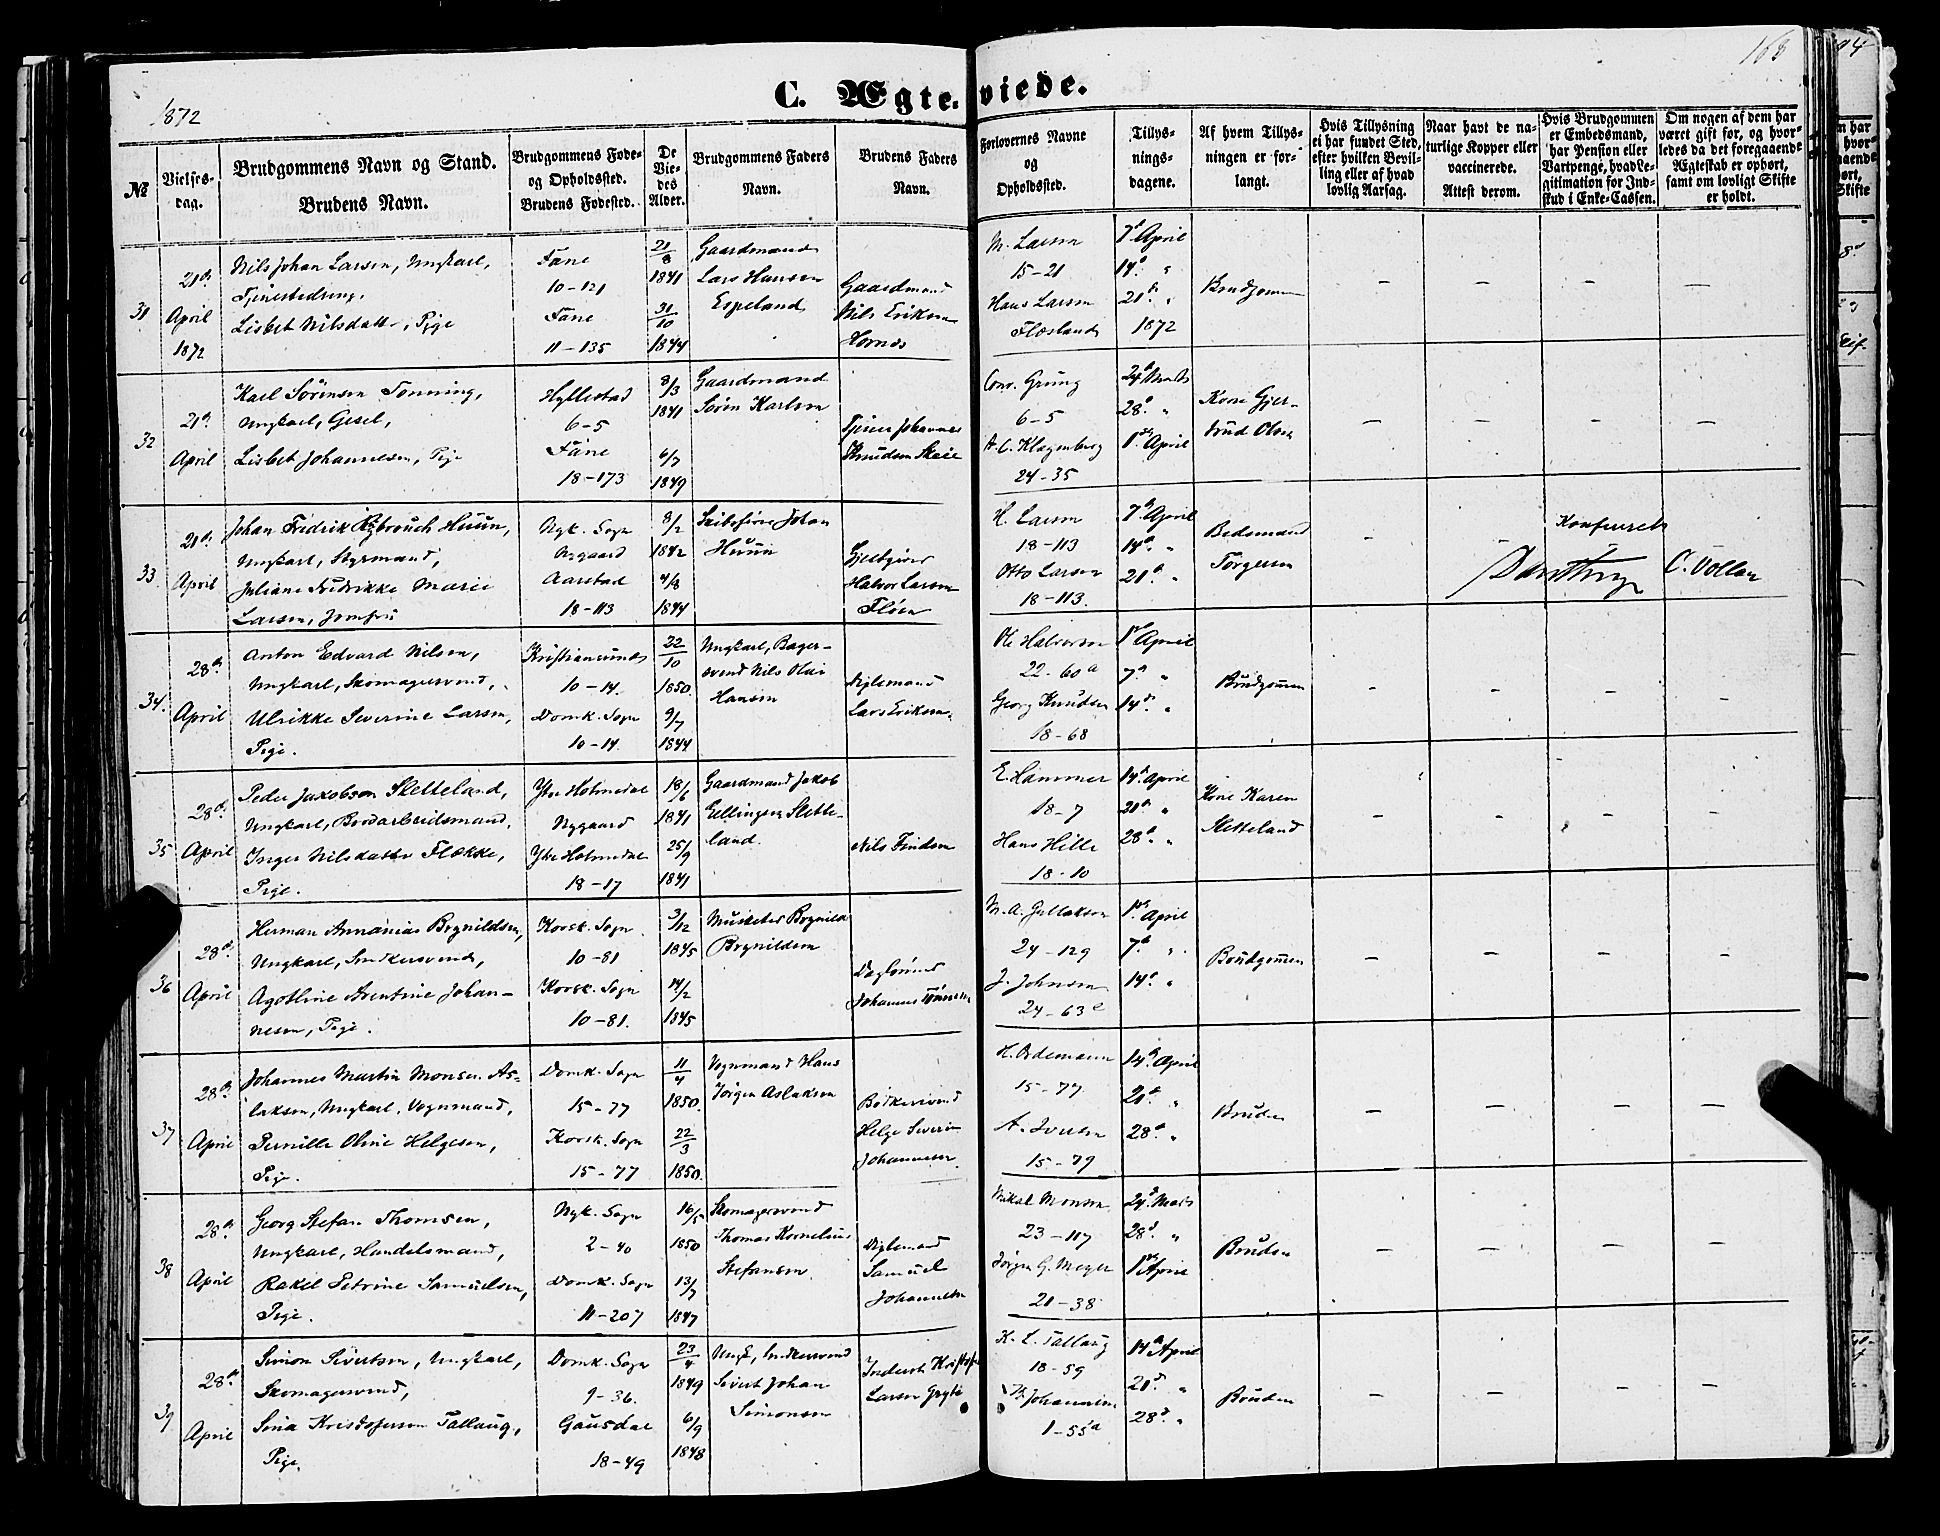 168
1872
C. Ægteviede.
No
Vielses-
dag.
Brudgommens Navn og Stand.
Brudens Navn.
Brudgommens Føde-
og Opholdssted.
Brudens Fødested.
De
Vie-
des
Alder.
Brudgommens Faders
Navn.
Brudens Faders
Navn.
Forlovernes Navne
og
Opholdssted.
Tillys-
nings-
dagene.
Af hvem Tillys-
ningen er for-
langt.
Hvis Tillysning
ei har fundet Sted,
efter hvilken Bevil-
ling eller af hvad
lovlig Aarsag.
Naar havt de na-
turlige Kopper eller
vaccinerede.
Attest derom.
Hvis Brudgommen
er Embedsmand,
har Pension eller
Vartpenge, hvad Le-
gitimation for Ind-
skud i Enke-Cassen.
Om nogen af dem har
været gift før, og hvor-
ledes da det foregaaende
Ægteskab er ophørt,
samt om lovligt Skifte
er holdt.
31
21de
April
1872
Nils Johan Larsen, Ungkarl,
Tjenestedreng,
Lisbet Nilsdatt-, Pige
Fane
10-121
Fane
11-135
21/8
1841
31/10
1844
Gaardmand
Lars Hansen
Espeland
Gaardmand
Nils Eriksen
M. Larsen
15-21
Hans Larsen
Flesland
7d April
14d "
21d "
1872
Brudgommen
32
21de
April
Karl Sörensen Tonning,
Ungkarl, Gesel,
Lisbet Johannesen, Pige
Hyllestad
6-5
Fane
18-173
8/3
1841
6/7
1849
Gaardmand
Sören Karlsen
Tjener Johannes
Knudsen Skeie
Conr. Grung
6-5
A. C. Klagenberg
24-35
24d Marts
28d "
1ste April
Kone Gjer-
trud Olsen
33
21de
April
Johan Fredrik Huun,
Ungkarl, Styrmand,
Juliane Fredrikke Marie
Larsen, Jomfru
Nyk. Sogn
Nygaard
Aarstad
18-113
8/2
1842
4/8
1844
Skibsförer Johan
Huun
Gjestgiver
Halvor Larsen
Flöen
H. Larsen
18-113
Otto Larsen
18-113.
7d April
14d "
21d "
Bedemand
Torgersen
Konfereret
C. Vollan
34.
28de
April
Anton Edvard Nilsen,
Ungkarl, Skomagersvend,
Ulrikke Severine Larsen,
Pige.
Kristiansund
10-14.
Domk. Sogn
10-14.
22/10
1850.
9/7
1844
Ungkarl, Bager-
svend Nils Olai
Hansen
Veglemand
Lars Eriksen
Ole Halvorsen
22-60a
Georg Knudsen
18-68
1ste April
7d "
14d "
Brudgomen
35
28de
April
Peder Jakobsen Sletteland,
Ungkarl, Bordarbeidsmand,
Inger Nilsdatter Flekke,
Pige.
Ytre Holmedal
Nygaard
Ytre Holmedal
18-17
18/6
1841
25/9
1841
Gaardmand Jakob
Ellingsen Slette-
land.
Nils Findsen
E. Hammer
18-7
Hans Hille
18-10
14d April
21d "
28d "
Kone Karen
Sletteland
36
28de
April
Herman Annanias Brynildsen,
Ungkarl, Snedkersvend,
Agotline Arentine Johan-
nesen, Pige.
Korsk. Sogn
10-81
Korsk. Sogn
10-81.
3/12
1845
14/2
1845
Musketer Brynild
Brynildsen
Daglönner
Johannes Tönnesen
M. A. Gullaksen
24-129
J. Johnsen
24-63c
1ste April
7d "
14d "
Brudgomen
37
28de
April
Johannes Martin Monsen As-
laksen, Ungkarl, Vognmand,
Pernille Oline Helgesen,
Pige.
Domk. Sogn
15-77
Korsk. Sogn
15-77
11/4
1850.
22/3
1850.
Vognmand Hans
Jörgen Aslaksen
Bödkersvend
Helge Severin
Johannesen
H. Ordemann
15-77
A. Iversen
15-79
14d April
21d "
28d "
Bruden
38
28de
April
Georg Stefan Thomsen,
Ungkarl, Handelsmand,
Rakel Petrine Samuelsen,
Pige.
Nyk. Sogn
2-40
Domk. Sogn
11-207
16/5
1850
13/7
1847
Skomagersvend
Thomas Kornelius
Stefansen.
Veglemand
Samuel
Johannesen
Mikal Monsen
23-117
Jörgen G. Meyer
21-38
24d Marts
28d "
1ste April
Bruden
39
28de
April
Simon Sivertsen, Ungkarl,
Skomagersvend,
Sina Kristofersen Tallaug,
Pige.
Domk. Sogn
9-36.
Gausdal
18-49
23/4
1849
6/9
1848
Ungk, Snedkersvend
Sivert Johan
Simonsen
Inderst Kristofer
Larsen
K. L. Tallaug
18-59
Johannesen
1-55a
14d April
21d "
28d "
Bruden